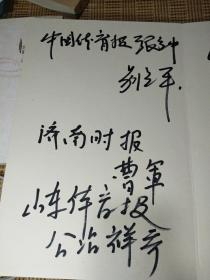 中国体育报 张立中
别立军
济南时报
曹军
山东体育报
公冶祥奇